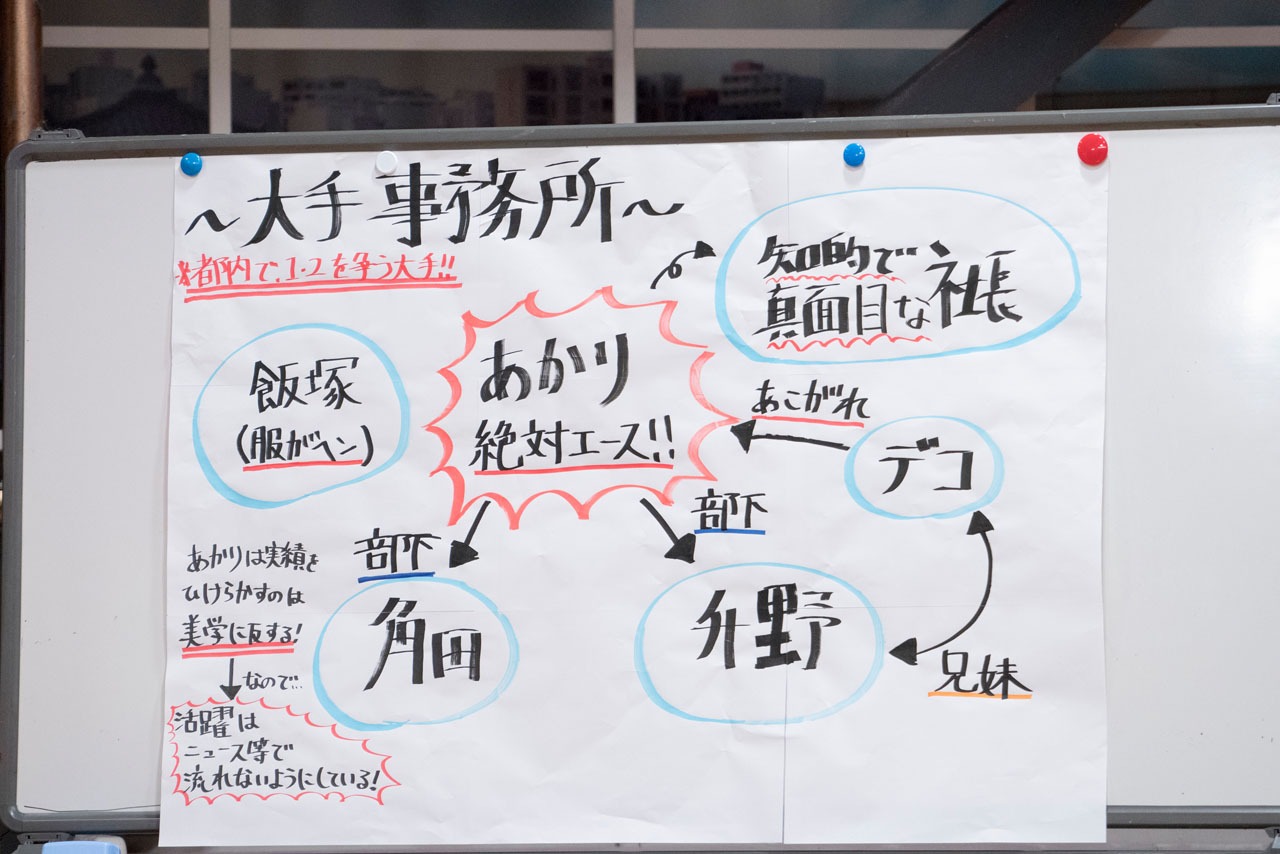 ～大手事務所～
※都内で、1・2を争う大手!!
知的で
真面目な社長
飯塚
(服がヘン)
あかり
絶対エース!!
あこがれ
デコ
部下
部下
角田
升野
兄妹
あかりは実績を
ひけらかすのは
美学に反する!
なので…
活躍は
ニュース等で
流れないようにしている!